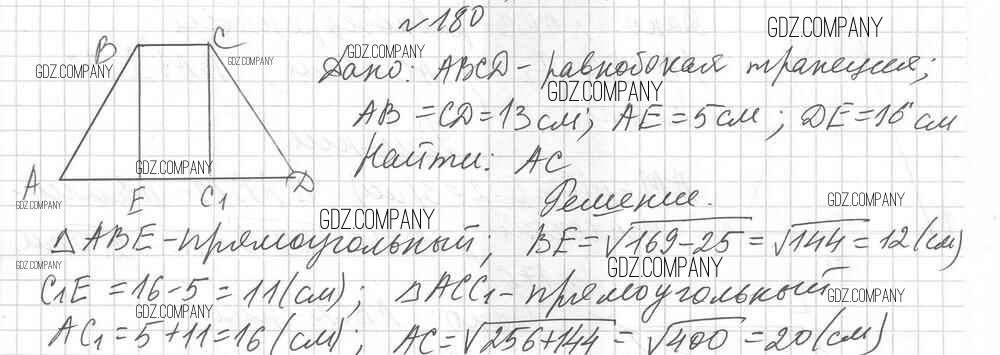 №180
GDZ.COMPANY
B C
GDZ.COMPANY
GDZ.COMPANY
GDZ.COMPANY
Дано: ABCD - равнобокая трапеция;
GDZ.COMPANY
AB = CD = 13 см; AE = 5 см; DE = 16 см
Найти: AC
GDZ.COMPANY
A E C₁ D
GDZ.COMPANY
Решение.
GDZ.COMPANY
GDZ.COMPANY
△ABE - прямоугольный; BE = √169-25 = √144 = 12 (см)
GDZ.COMPANY
GDZ.COMPANY
C₁E = 16-5 = 11 (см); △ACC₁ - прямоугольный
GDZ.COMPANY
GDZ.COMPANY
AC₁ = 5+11 = 16 (см); AC = √256+144 = √400 = 20 (см)